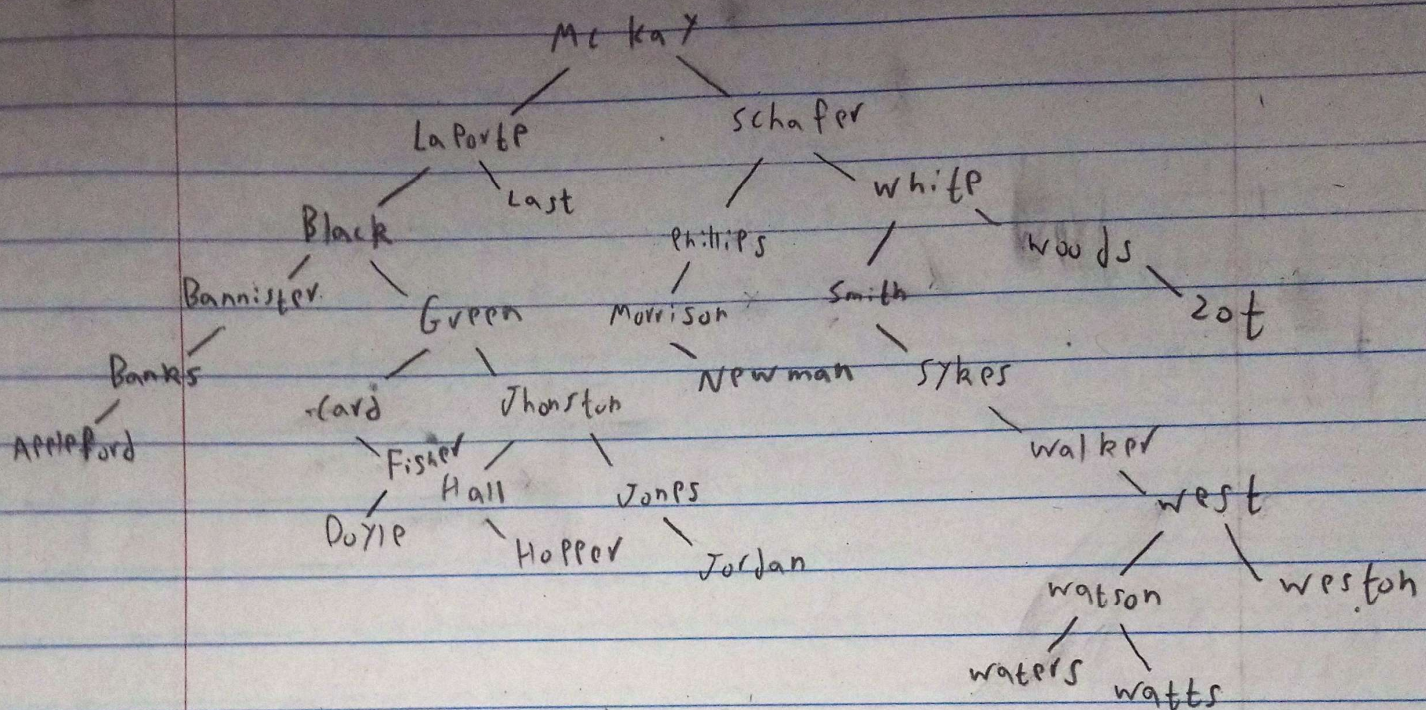 McKay
LaPorte Schafer
Black Last Phillips White
Bannister Green Morrison Smith Woods
Banks Card Jhonston Newman Sykes Zot
Appleford Fisher Hall Jones Walker
Doyle Hopper Jordan West
Watson Weston
Waters Watts